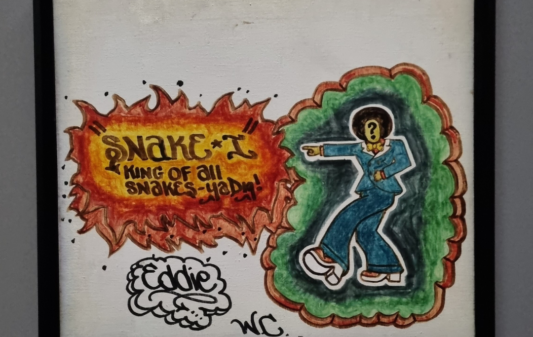 "SNAKE*I"
*KING OF all
SNAKES-yaDig!
?
Eddie
W.C.